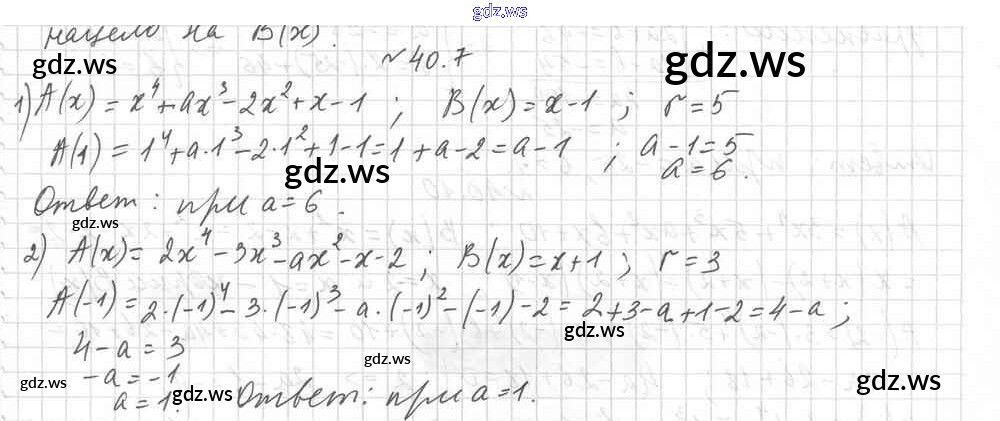 gdz.ws
нацело на B(x).
gdz.ws
№ 40.7
gdz.ws
1) A(x) = x⁴ + ax³ - 2x² + x - 1 ; B(x) = x - 1 ; r = 5
A(1) = 1⁴ + a·1³ - 2·1² + 1 - 1 = 1 + a - 2 = a - 1 ; a - 1 = 5
a = 6.
gdz.ws
Ответ: при a = 6.
gdz.ws
2) A(x) = 2x⁴ - 3x³ - ax² - x - 2 ; B(x) = x + 1 ; r = 3
A(-1) = 2·(-1)⁴ - 3·(-1)³ - a·(-1)² - (-1) - 2 = 2 + 3 - a + 1 - 2 = 4 - a ;
gdz.ws
4 - a = 3
gdz.ws
-a = -1
gdz.ws
gdz.ws
gdz.ws
a = 1. Ответ: при a = 1.